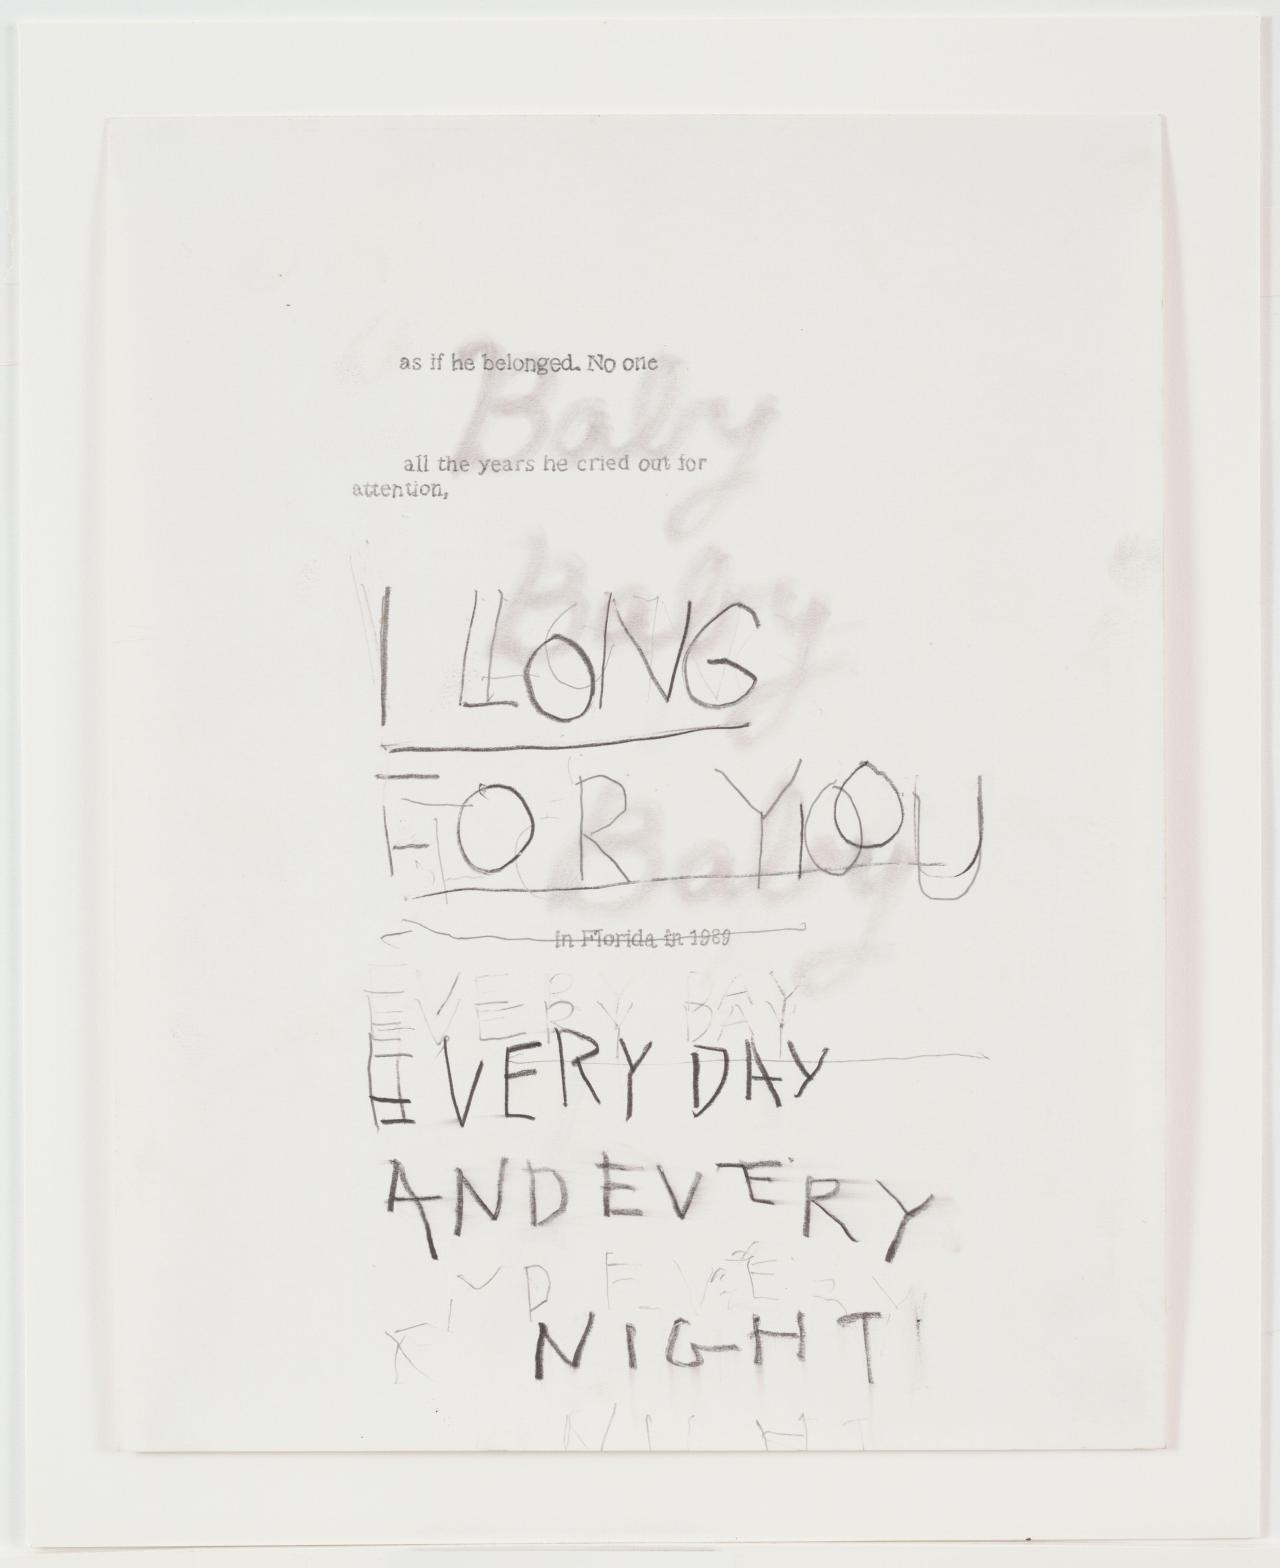 as if he belonged. No one
Baby
all the years he cried out for
attention,
Baby
I LLONG
FOR YOOU
Baby
in Florida in 1989
EVERY DAY
EVERY DAY
EVERY DAY
AND EVERY
ND EVERY
NIGHT
NIGHT